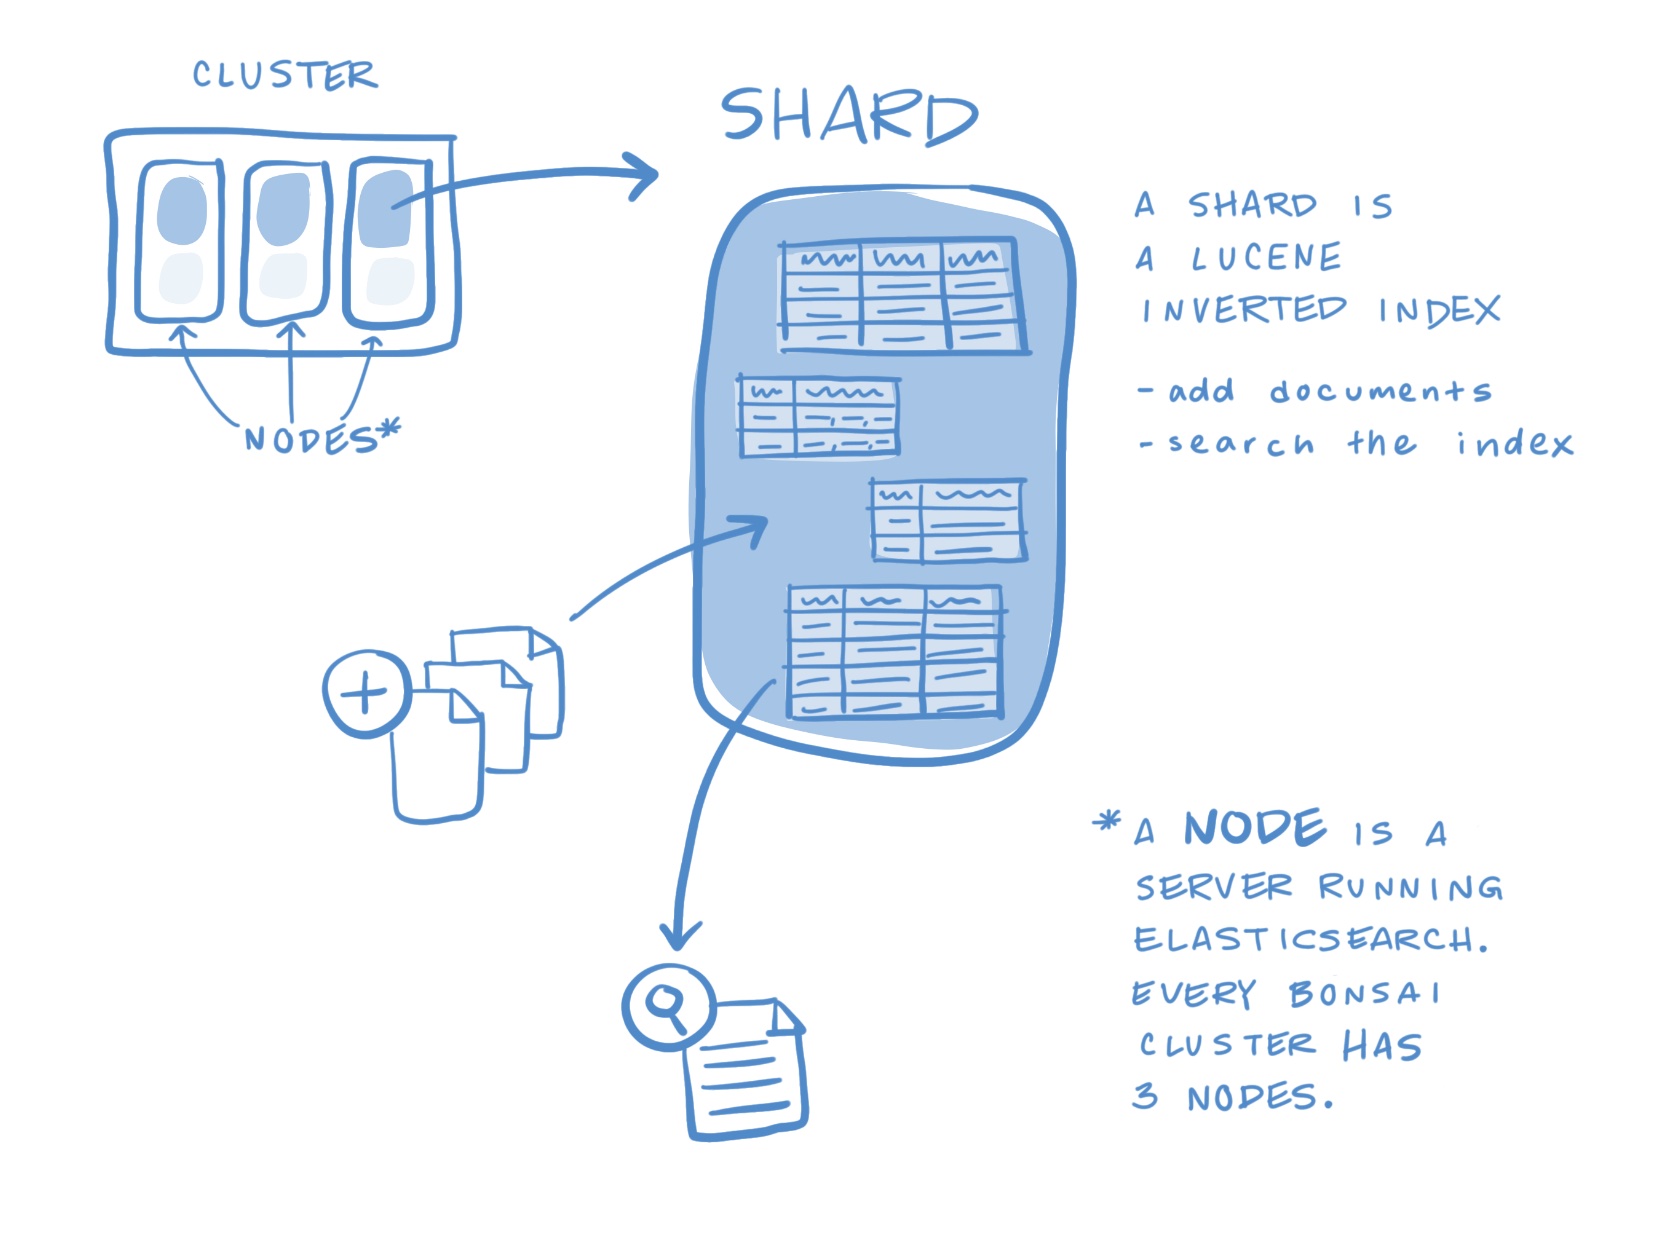 CLUSTER
SHARD
A SHARD IS
A LUCENE
INVERTED INDEX
- add documents
- search the index
NODES*
* A NODE IS A
SERVER RUNNING
ELASTICSEARCH.
EVERY BONSAI
CLUSTER HAS
3 NODES.